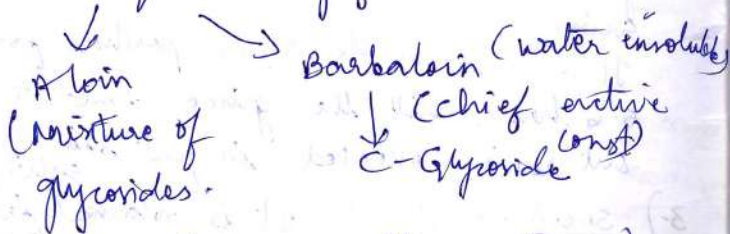 Aloin
(mixture of
glycosides.
Barbaloin (water insoluble)
(chief active
const)
C-Glycoside